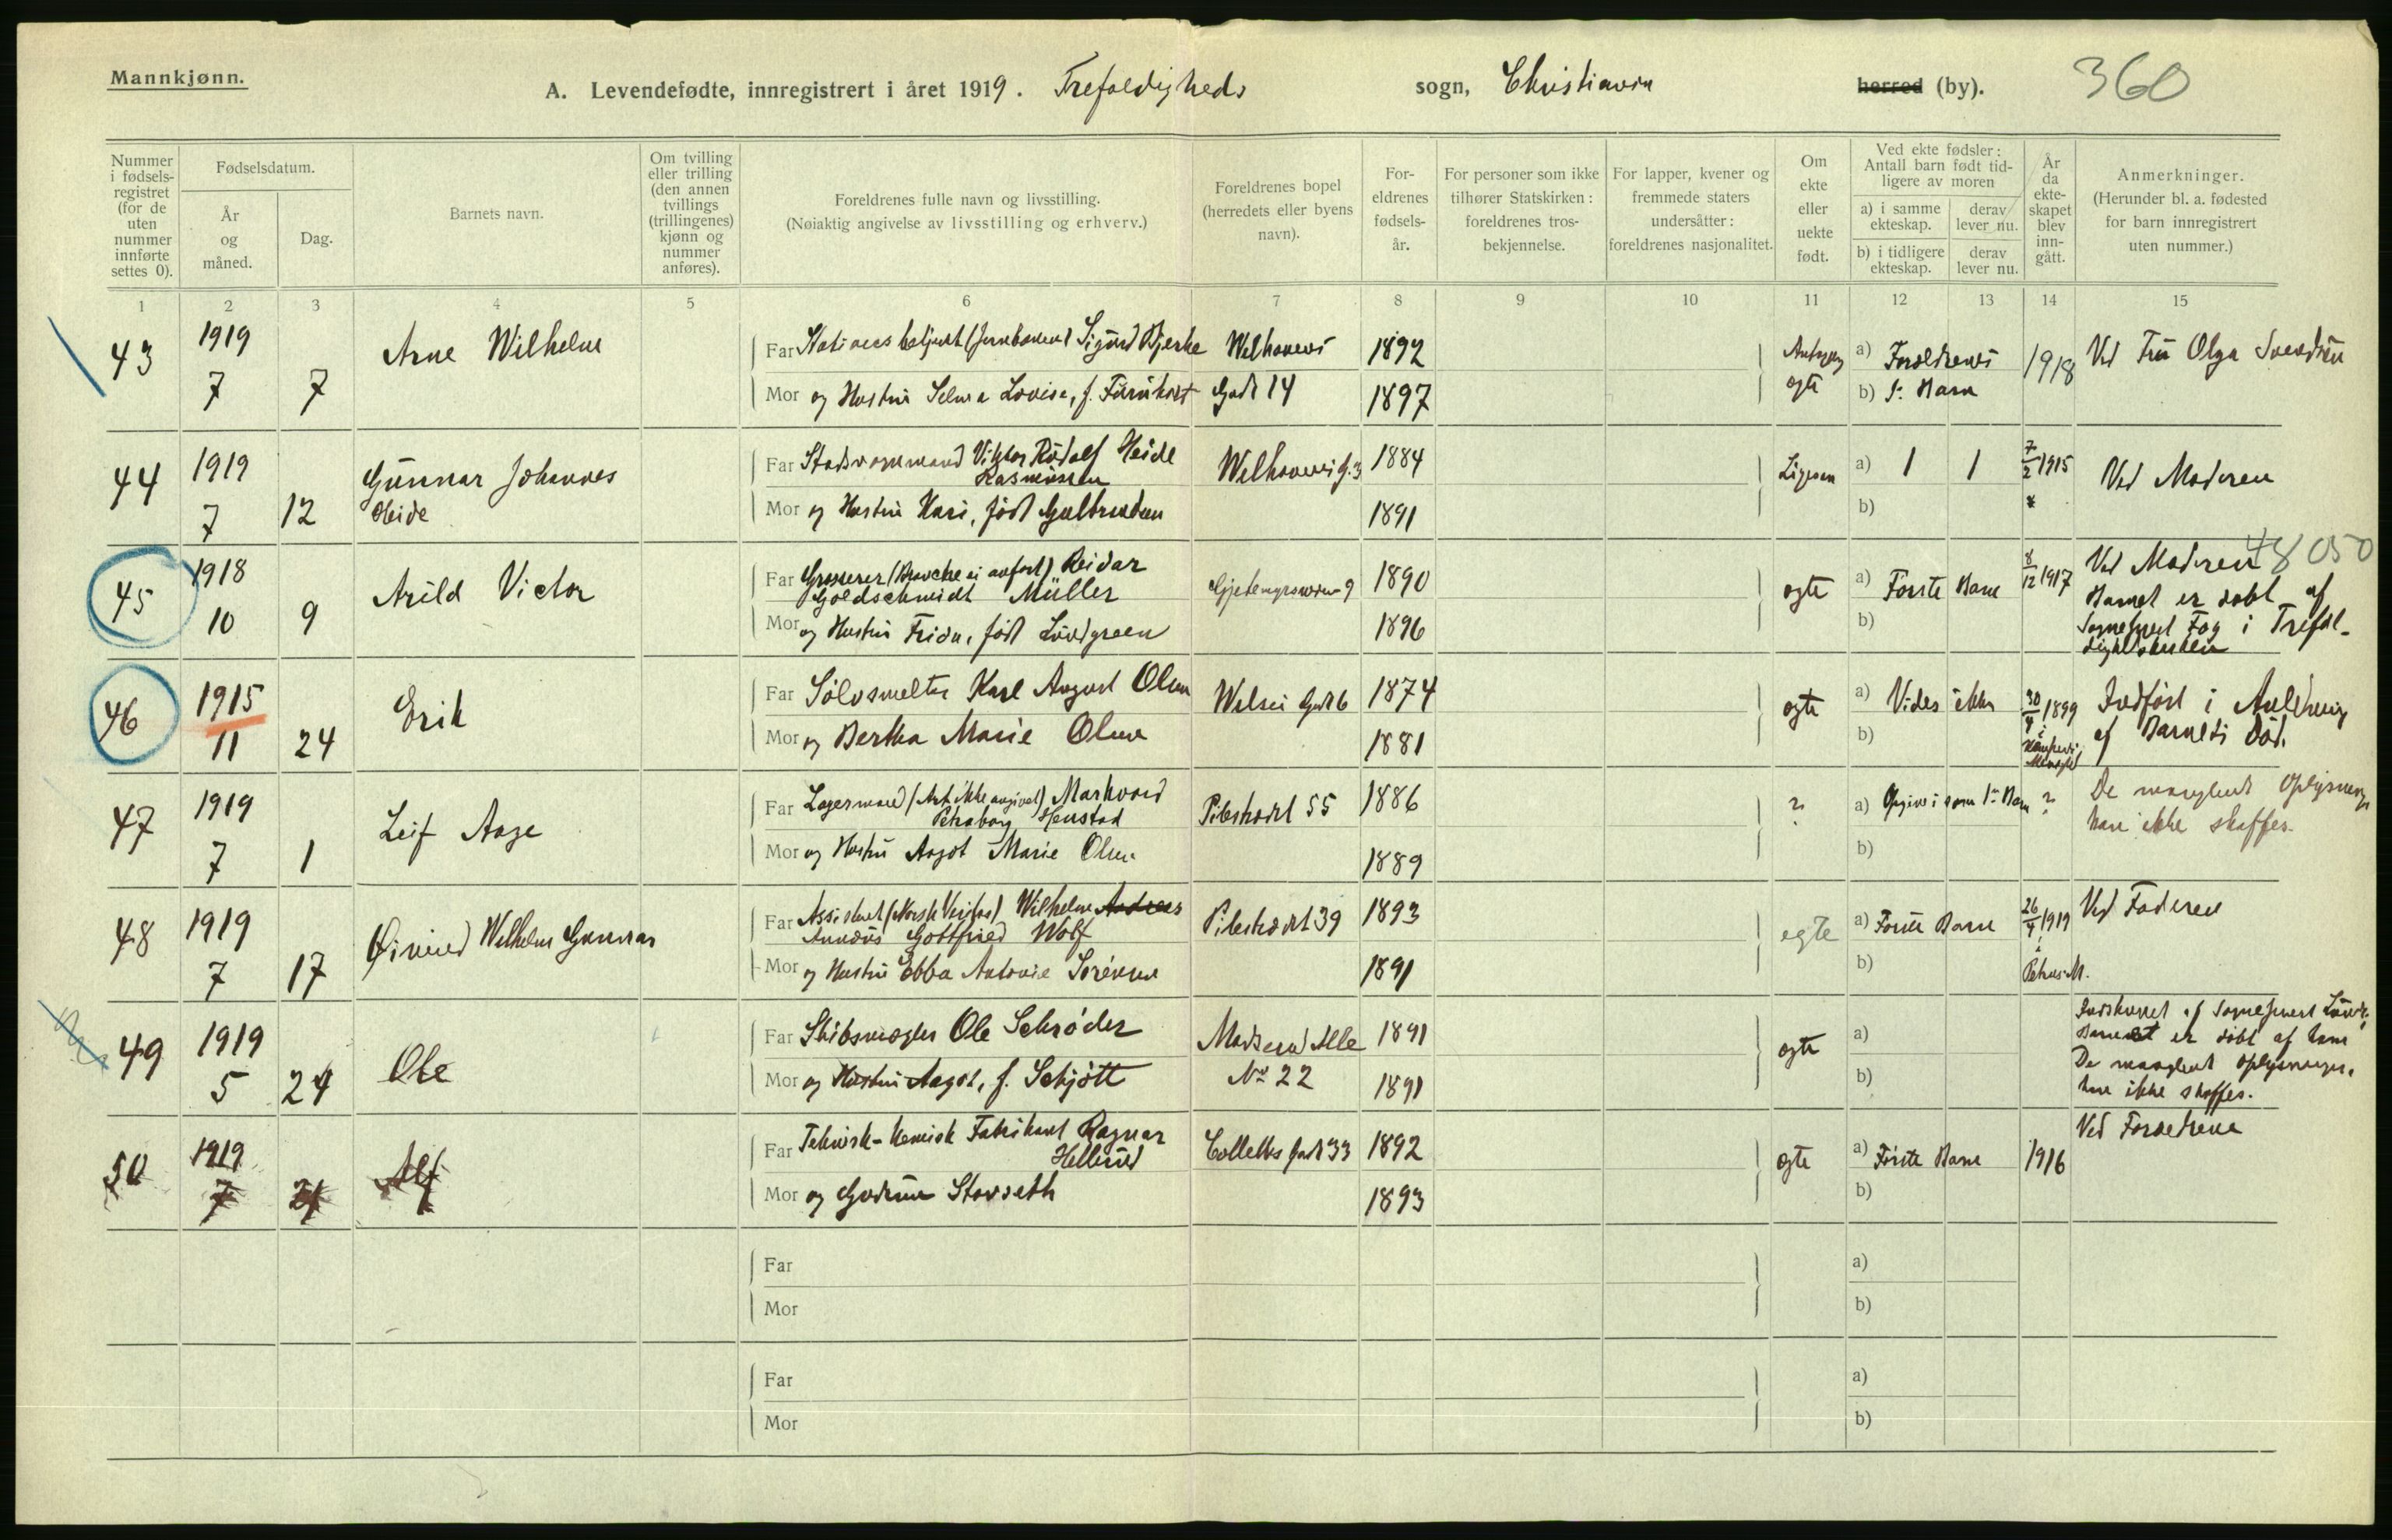 Mannkjønn.
A. Levendefødte, innregistrert i året 1919. Trefoldigheds sogn, Christiania herred (by). 360
Nummer i fødselsregistret (for de uten nummer innførte settes 0).
Fødselsdatum.
År og måned.
Dag.
Barnets navn.
Om tvilling eller trilling (den annen tvillings (trillingenes) kjønn og nummer anføres).
Foreldrenes fulle navn og livsstilling.
(Nøiaktig angivelse av livsstilling og erhverv.)
Foreldrenes bopel (herredets eller byens navn).
Foreldrenes fødselsår.
For personer som ikke tilhører Statskirken: foreldrenes trosbekjennelse.
For lapper, kvener og fremmede staters undersåtter: foreldrenes nasjonalitet.
Om ekte eller uekte født.
Ved ekte fødsler: Antall barn født tidligere av moren
a) i samme ekteskap.
derav lever nu.
b) i tidligere ekteskap.
derav lever nu.
År da ekteskapet blev inngått.
Anmerkninger.
(Herunder bl. a. fødested for barn innregistrert uten nummer.)
1 2 3 4 5 6 7 8 9 10 11 12 13 14 15
43 1919 7 7 Arne Wilhelm
Far Sigurd Bjerke Welhavens 1892
Mor og Hustru Selma Lovise, f. Gade 14 1897
ægte a) Forældrenes b) 1. Barn 1918 Ved Fru Olga Svendsen
44 1919 7 12 Gunnar Johannes Heide
Far Viktor Rudolf Heide Rasmussen Welhavens g. 3 1884
Mor og Hustru Kari, født 1891
Ligesom a) 1 1 b) 7/2 1915 Ved Moderen
45 1918 10 9 Arild Victor
Far Grosserer (Branche ei anført) Reidar Goldschmidt Müller 9 1890
Mor og Hustru Frida, født Lövdgreen 1896
ægte a) Første Barn b) 8/12 1917 Ved Moderen 48 050
Barnet er døbt af Sogneprest Fog i Trefoldighedskirken
46 1915 11 24 Erik
Far Sølvsmelter Karl August Olsen Gade 6 1874
Mor og Bertha Marie Olsen 1881
ægte a) Vides ikke b) 30/4 1899 Indført i Anledning af Barnets Død.
47 1919 7 1 Leif Aage
Far Lagermand (Art ikke angivet) Markvard Henstad Pilestrædet 55 1886
Mor og Hustru Aagot Marie Olsen 1889
? a) Opgives som 1ste Barn b) ? De manglende Oplysninger kan ikke skaffes.
48 1919 7 17 Øivind Wilhelm Gunnar
Far Assistent (Norsk Veritas) Wilhelm Andreas Gottfried Wolf Pilestrædet 39 1893
Mor og Hustru Ebba Antonie Sørensen 1891
egte a) Første Barn b) 26/4 1919 i Petrus M. Ved Faderen
49 1919 5 24 Ole
Far Skibsmægler Ole Schrøder Madserud Alle 1891
Mor og Hustru Aagot, f. Schjøtt No 22 1891
ægte a) b) af Sogneprest
Barnet er døbt af ham
De manglende Oplysninger
kan ikke skaffes.
50 1919 7 Alf
Far Teknisk-kemisk Fabrikant Ragnar Hellerud Colletts gade 33 1892
Mor og Gudrun Storseth 1893
ægte a) Første Barn b) 1916 Ved Forældrene
Far
Mor
a)
b)
Far
Mor
a)
b)